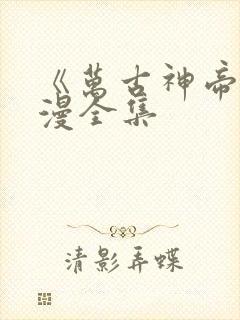 《萬古神帝
漫全集
清影弄蝶